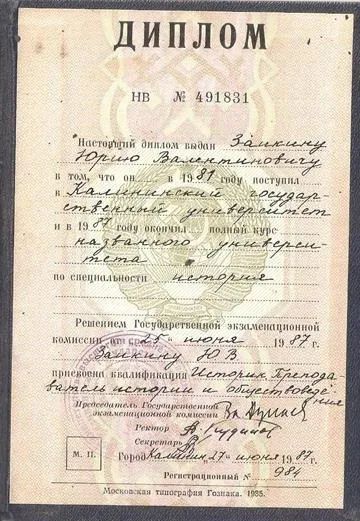 ДИПЛОМ
НВ № 491831
Настоящий диплом выдан Заикину
Юрию Валентиновичу
в том, что он в 1981 году поступил
в Калининский государ-
ственный университет
и в 1987 году окончил полный курс
названного универси-
тета
по специальности история
Решением Государственной экзаменационной
комиссии от 25 июня 1987 г.
Заикину Ю В
присвоена квалификация Историк Препода-
ватель истории и обществоведе-
ния
Председатель Государственной
экзаменационной комиссии
Ректор
Секретарь
М. П.
Город Калинин, 27 июня 1987 г.
Регистрационный № 984
Московская типография Гознака. 1985.